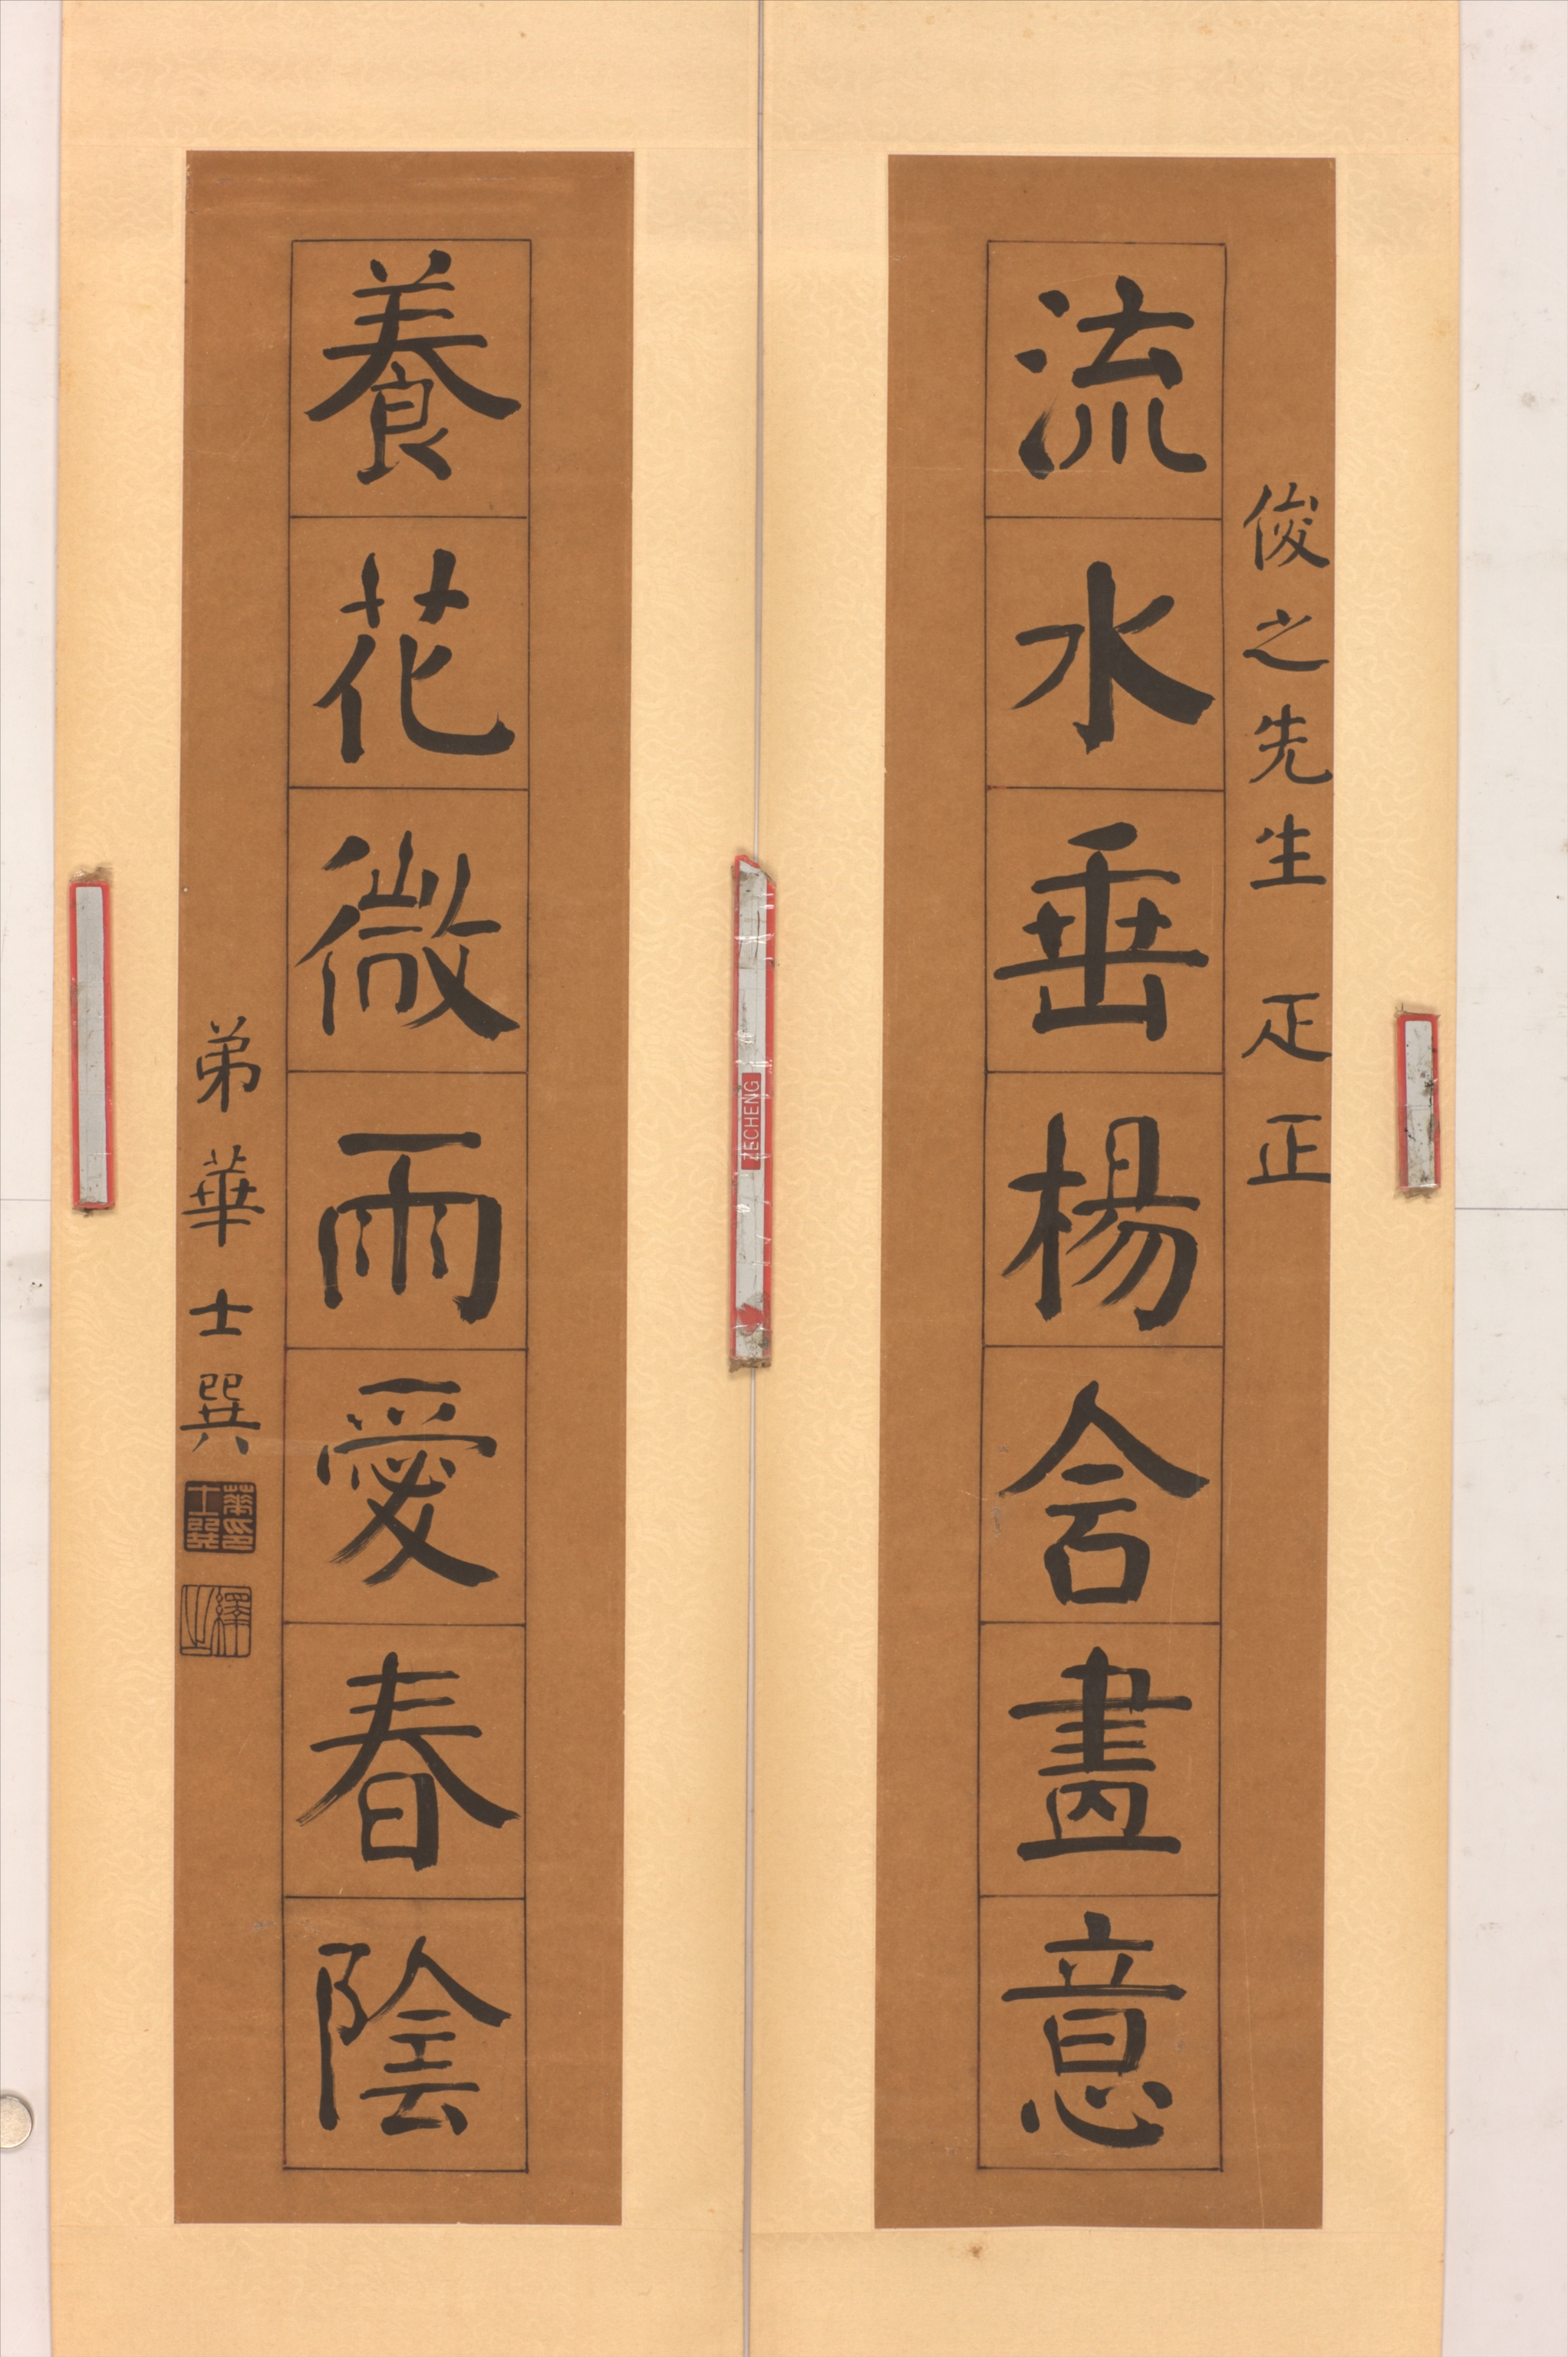 俊之先生 疋正
流水垂楊含畫意
養花微雨愛春陰
弟華士巽
華印士巽
繹之
ZECHENG